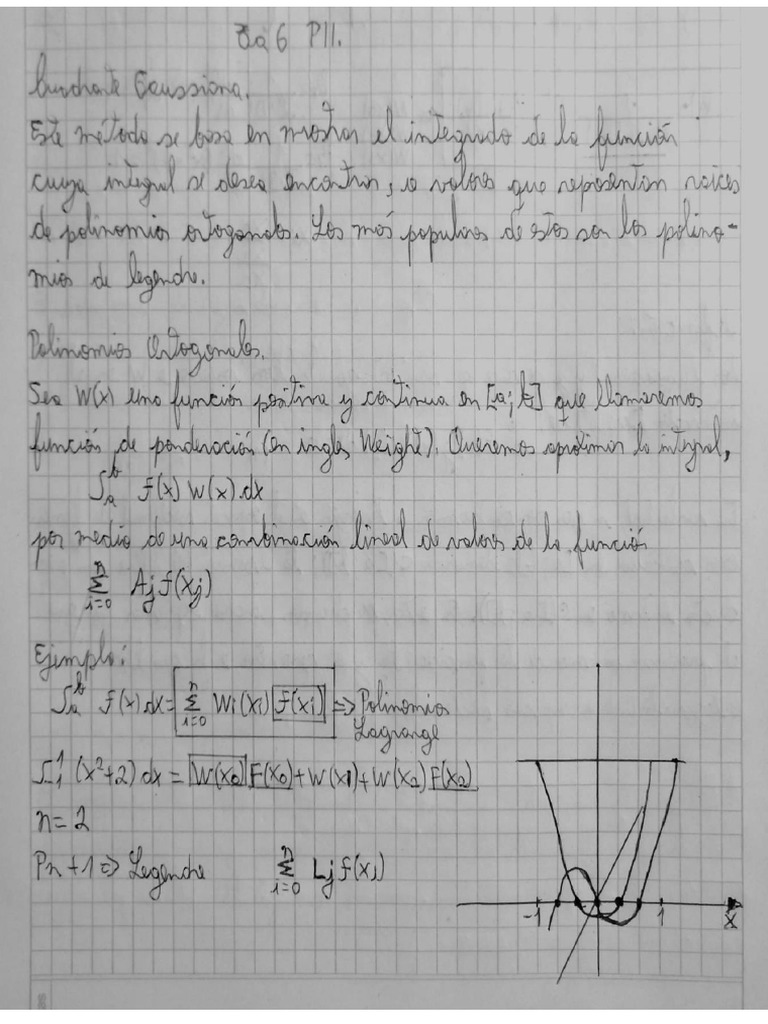 6 P11.
Gaussiana.
Este método se basa en mostrar el integrado de la función
cuya integral se desea encontrar, a valores que representan raices
de polinomios ortogonales. Los más populares de estos son los polino-
mios de legendre.
Polinomios Ortogonales.
Sea W(x) una función positiva y continua en [a; b] que llamaremos
función de ponderación (en ingles, Weight). Queremos aproximar la integral,
∫ₐᵇ f(x) W(x).dx
por medio de una combinación lineal de valores de la función
∑ⁿᵢ₌₀ Aⱼ f(xⱼ)
Ejemplo:
∫ₐᵇ f(x) dx = ∑ⁿᵢ₌₀ Wi(xi) f(xi) => Polinomios
Lagrange
∫₋₁¹ (x²+2) dx = W(x₀) F(x₀) + W(x1) + W(x₂) F(x₂)
n = 2
Pn + 1 => Legendre ∑ⁿᵢ₌₀ Lj f(xj)
-1 1 x